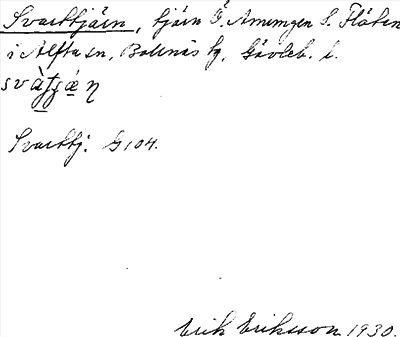 Svarttjärn, tjärn Ö. Amungen S. Flåten
i Alfta sn, Bollnäs tg, Gävleb. l.
Svarttj. G 104.
Erik Eriksson 1930.